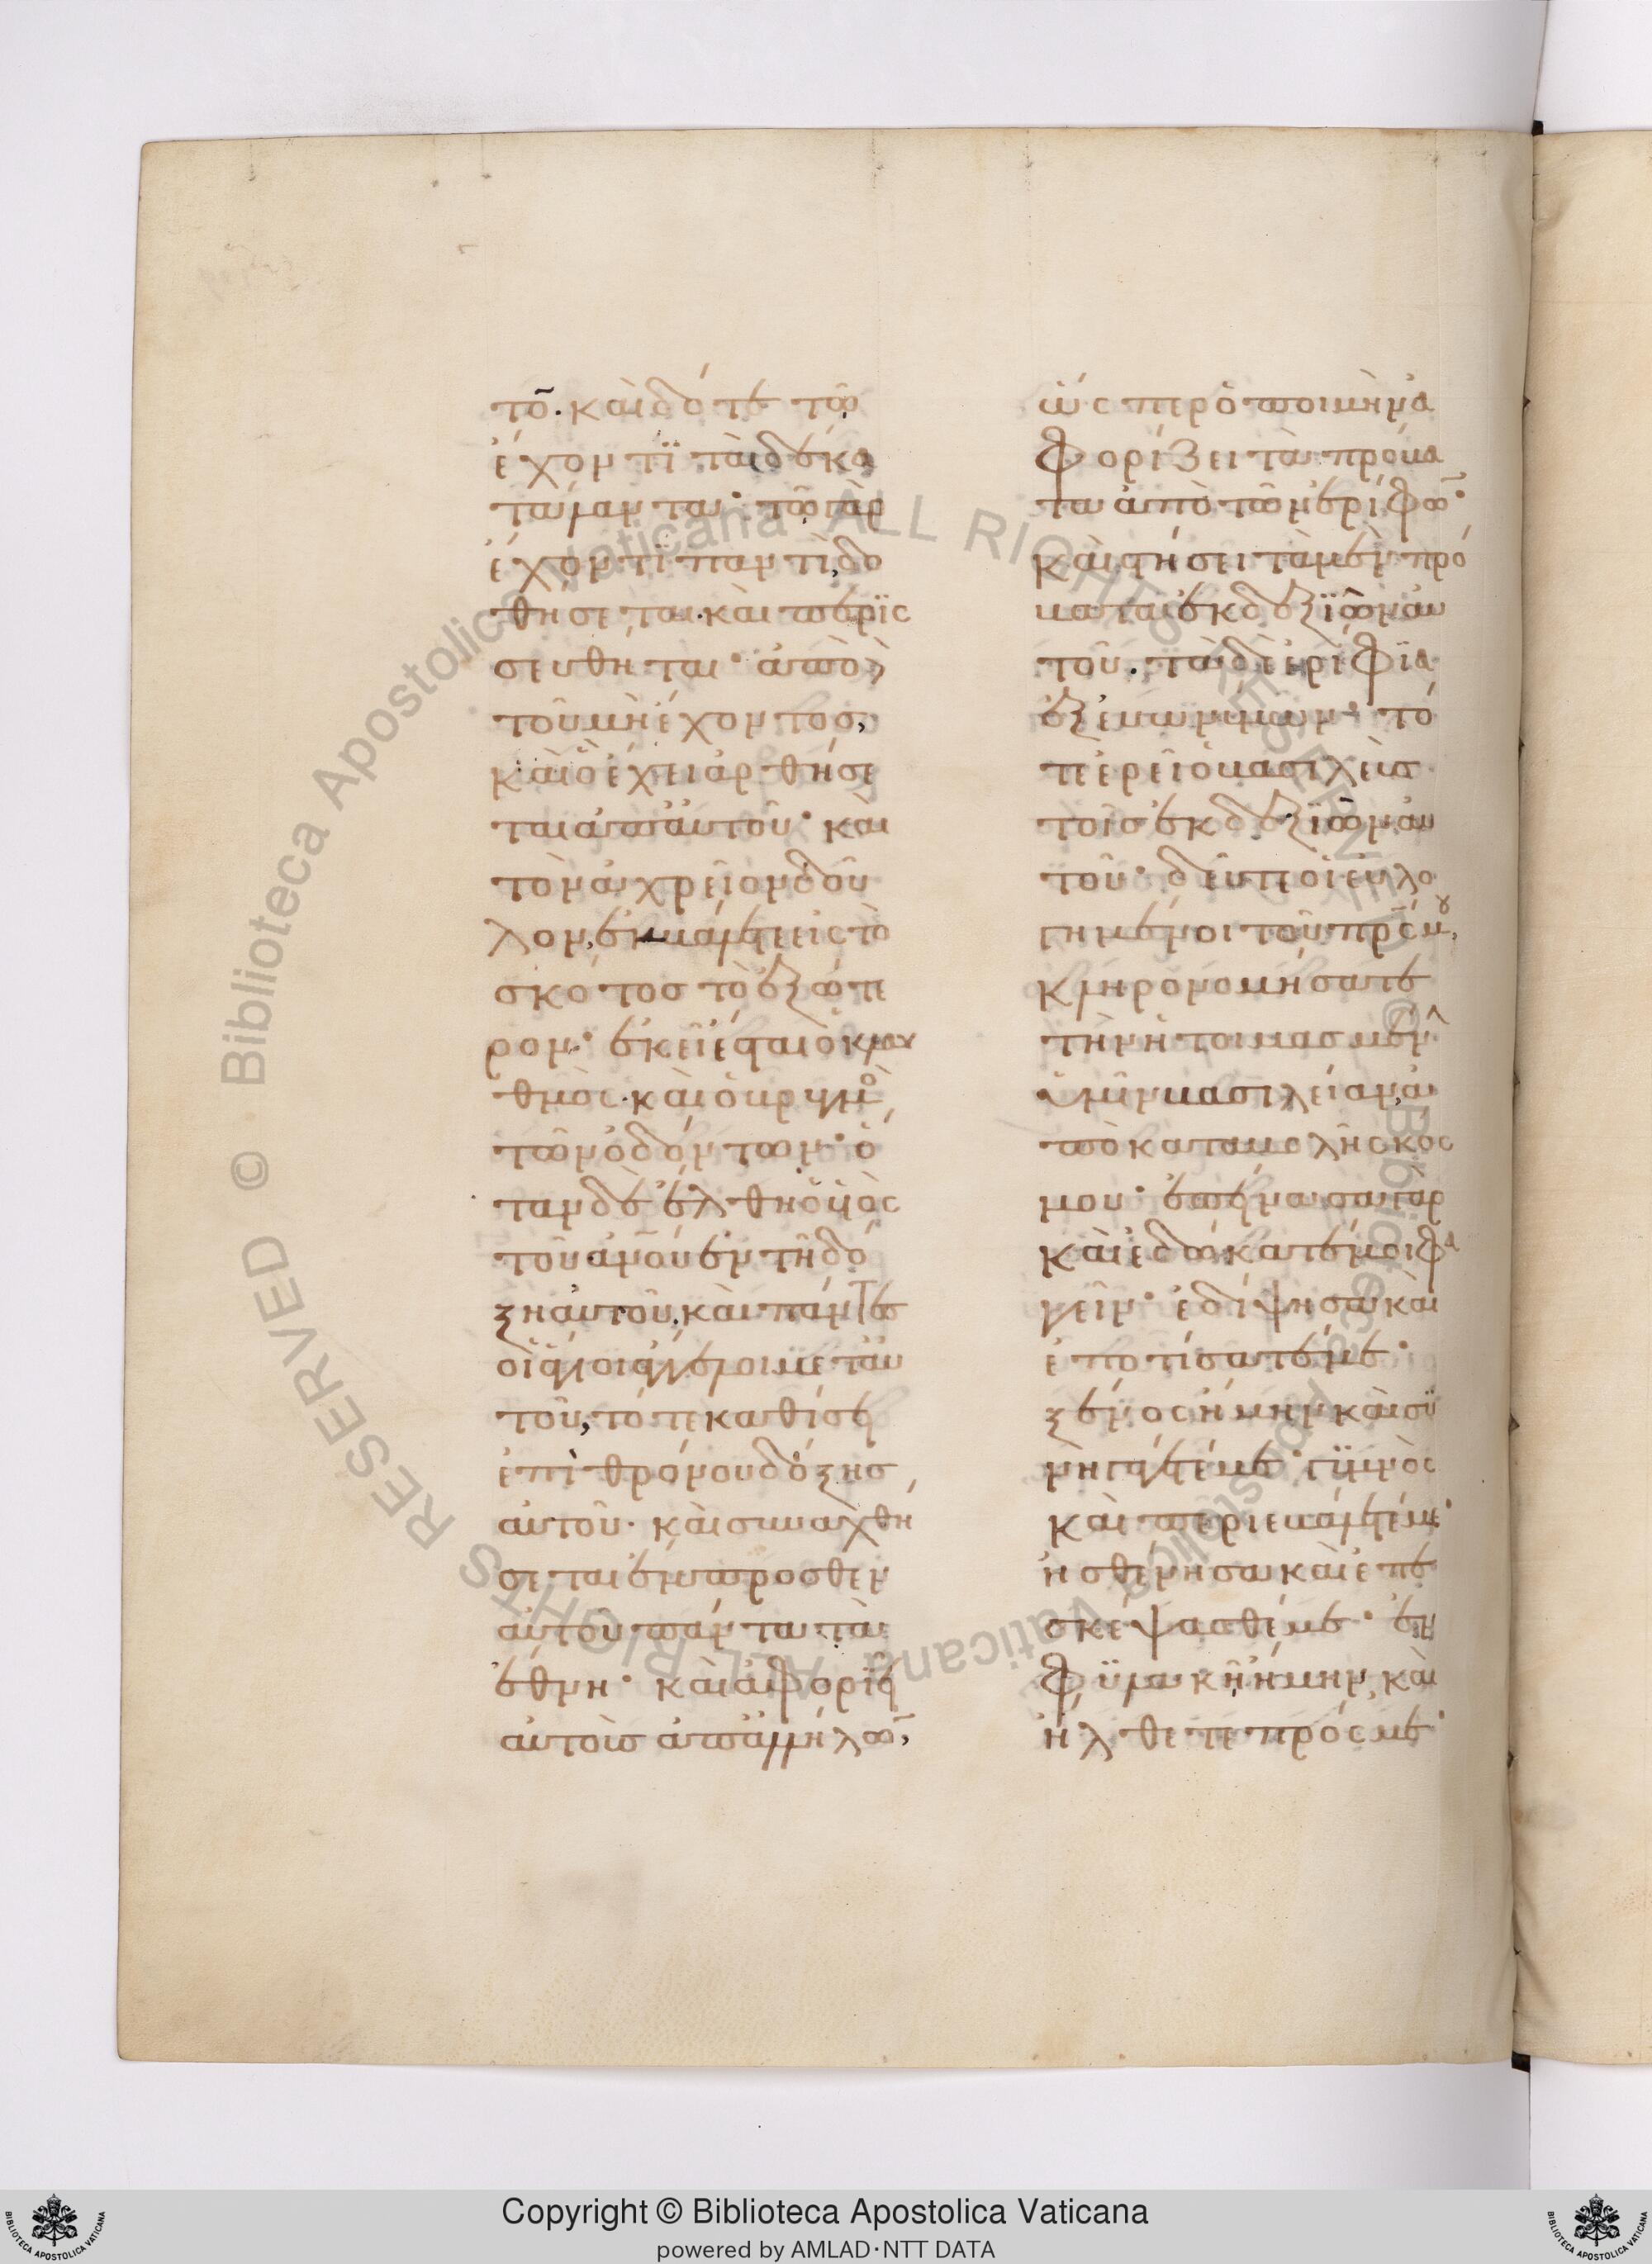 το̃. καὶ δότε τῶ
ἔχοντϊ τὰ δέκα
τάλαντα· τῶ γὰρ
ἔχοντϊ παντὶ, δο
θήσεται. καὶ περϊς
σευθήται· ἀπὸ δὲ
τοῦ μὴ ἔχοντοσ,
καὶ ὃ ἔχει ἀρθήσε
ται ἀπ' αὐτοῦ· καὶ
τὸν ἀχρεῖον δοῦ
λον, ἐκβάλετε εἰς τὸ
σκότοσ τὸ ἐξώτε
ρον· ἐκεῖ ἔσται ὁ κλαυ
θμὸς. καὶ ὁ βρυγμὸ
τῶν ὀδόντων· ὅ
ταν δὲ ἔλθη ὁ υἱὸς
τοῦ ἀνο̅υ ἐν τῆ δό
ξη αὐτοῦ. καὶ πάντες
οἱ ἅγιοι ἄγγελοι μετ' αὐ
τοῦ, τότε καθίσει
ἐπὶ θρόνου δόξησ
αὐτοῦ. καὶ συναχθή
σεται ἔμπροσθεν
αὐτοῦ πάντα τὰ
ἔθνη· καὶ ἀφοριεῖ
αὐτοὺσ ἀπ' ἀλλήλω̅,
ὥσπερ ὁ ποιμὴν ἀ
φορίζει τὰ πρόβα
τα ἀπὸ τῶν ἐρίφω̅·
καὶ στήσει τὰ μὲν πρό
βατα ἐκ δεξϊῶν αὐ
τοῦ. τὰ δὲ ἐρίφϊα
ἐξ εὐωνύμων· τό
τε ἐρεῖ ὁ βασιλεὺσ
τοῖσ ἐκ δεξιῶν αὐ
τοῦ· δεῦτε οἱ εὐλο
γημένοι τοῦ πρ̅ς μου,
κληρονομήσατε
τὴν ἡτοιμασμένην
ὑμῖν βασιλείαν, ἀ
πὸ καταβολῆς κόσ
μου· ἐπείνασα γὰρ
καὶ ἐδώκατέ μοι φα
γεῖν· ἐδίψησα καὶ
ἐποτίσατέ με·
ξένος ἤμην καὶ συ
νηγάγετέ με· γυμνὸς
καὶ περιεβάλετέ με·
ἠσθένησα καὶ ἐπε
σκέψασθέ με· ἐν
φϋλακῆ ἤμην, καὶ
ἤλθετε πρός με·